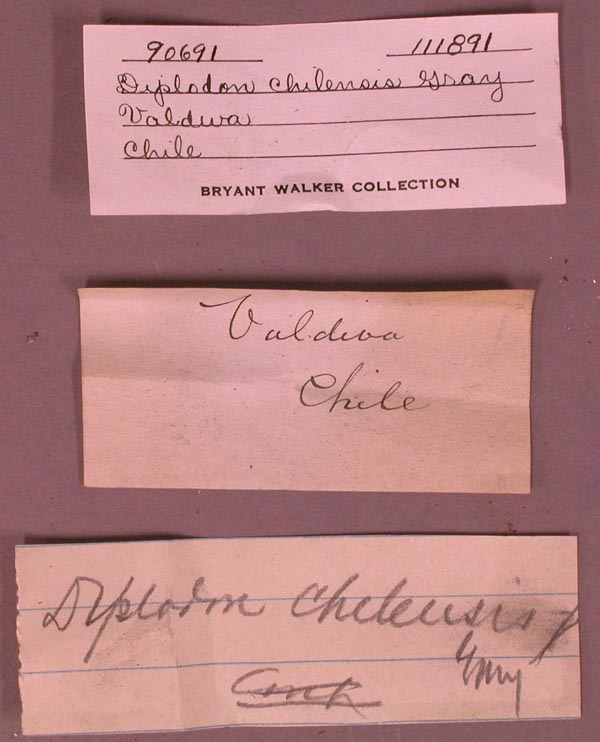 90691 111891
Diplodon chilensis Gray
Valdiva
Chile
BRYANT WALKER COLLECTION
Valdiva
Chile
Diplodon chilensis
Gray